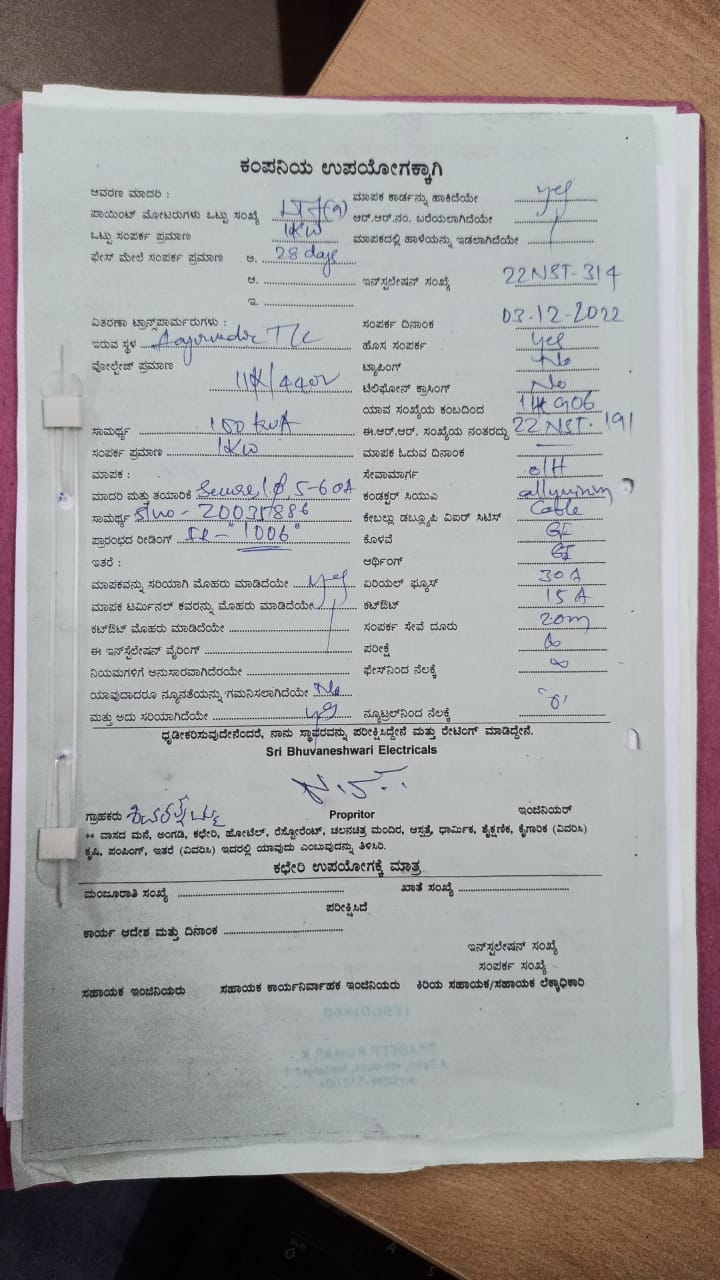 ಕಂಪನಿಯ ಉಪಯೋಗಕ್ಕಾಗಿ
ಆವರಣ ಮಾದರಿ : ಮಾಪಕ ಕಾರ್ಡನ್ನು ಹಾಕಿದೆಯೇ yes
ಪಾಯಿಂಟ್ ಮೋಟರುಗಳು ಒಟ್ಟು ಸಂಖ್ಯೆ ಆರ್.ಆರ್.ನಂ. ಬರೆಯಲಾಗಿದೆಯೇ
ಒಟ್ಟು ಸಂಪರ್ಕ ಪ್ರಮಾಣ 1KW ಮಾಪಕದಲ್ಲಿ ಹಾಳೆಯನ್ನು ಇಡಲಾಗಿದೆಯೇ
ಫೇಸ್ ಮೇಲೆ ಸಂಪರ್ಕ ಪ್ರಮಾಣ ಅ. 28 days
ಆ. ಇನ್‌ಸ್ಟಲೇಷನ್ ಸಂಖ್ಯೆ 22NST-314
ಇ.
ವಿತರಣಾ ಟ್ರಾನ್ಸ್‌ಪಾರ್ಮರುಗಳು : ಸಂಪರ್ಕ ದಿನಾಂಕ 03.12-2022
ಇರುವ ಸ್ಥಳ Aayurvedic T/C ಹೊಸ ಸಂಪರ್ಕ yes
ವೋಲ್ಟೇಜ್ ಪ್ರಮಾಣ ಟ್ಯಾಪಿಂಗ್ No
11K/440V ಟೆಲಿಫೋನ್ ಕ್ರಾಸಿಂಗ್ No
ಯಾವ ಸಂಖ್ಯೆಯ ಕಂಬದಿಂದ
ಸಾಮರ್ಥ್ಯ 100 KVA ಈ.ಆರ್.ಆರ್. ಸಂಖ್ಯೆಯ ನಂತರದ್ದು 22 NST. 191
ಸಂಪರ್ಕ ಪ್ರಮಾಣ 1KW ಮಾಪಕ ಓದುವ ದಿನಾಂಕ
ಮಾಪಕ : ಸೇವಾಮಾರ್ಗ O/H
ಮಾದರಿ ಮತ್ತು ತಯಾರಿಕೆ Secure 1Φ, 5-60A ಕಂಡಕ್ಟರ್ ಸಿಯುಎ allyuminum
ಸಾಮರ್ಥ್ಯ Slno - 20035886 ಕೇಬಲ್ಲು ಡಬ್ಲ್ಯೂಪಿ ವಿಐರ್ ಸಿಟಿಸ್ Cable
ಪ್ರಾರಂಭದ ರೀಡಿಂಗ್ "1006" ಕೊಳವೆ GI
ಇತರೆ : ಆರ್ಥಿಂಗ್ GI
ಮಾಪಕವನ್ನು ಸರಿಯಾಗಿ ಮೊಹರು ಮಾಡಿದೆಯೇ yes ಏರಿಯಲ್ ಫ್ಯೂಸ್ 30 A
ಮಾಪಕ ಟರ್ಮಿನಲ್ ಕವರನ್ನು ಮೊಹರು ಮಾಡಿದೆಯೇ ಕಟ್‌ಔಟ್ 15 A
ಕಟ್‌ಔಟ್ ಮೊಹರು ಮಾಡಿದೆಯೇ ಸಂಪರ್ಕ ಸೇವೆ ದೂರು 20m
ಈ ಇನ್‌ಸ್ಟಲೇಷನ್ ವೈರಿಂಗ್ ಪರೀಕ್ಷೆ ∞
ನಿಯಮಗಳಿಗೆ ಅನುಸಾರವಾಗಿದೆರಯೇ ಫೇಸ್‌ನಿಂದ ನೆಲಕ್ಕೆ ∞
ಯಾವುದಾದರೂ ನ್ಯೂನತೆಯನ್ನು ಗಮನಿಸಲಾಗಿದೆಯೇ No
ಮತ್ತು ಅದು ಸರಿಯಾಗಿದೆಯೇ yes ನ್ಯೂಟ್ರಲ್‌ನಿಂದ ನೆಲಕ್ಕೆ "0"
ಧೃಡೀಕರಿಸುವುದೇನೆಂದರೆ, ನಾನು ಸ್ಥಾಪರವನ್ನು ಪರೀಕ್ಷಿಸಿದ್ದೇನೆ ಮತ್ತು ರೇಟಿಂಗ್ ಮಾಡಿದ್ದೇನೆ.
Sri Bhuvaneshwari Electricals
ಗ್ರಾಹಕರು Propritor ಇಂಜಿನಿಯರ್
** ವಾಸದ ಮನೆ, ಅಂಗಡಿ, ಕಛೇರಿ, ಹೋಟೆಲ್, ರೆಸ್ಟೋರೆಂಟ್, ಚಲನಚಿತ್ರ ಮಂದಿರ, ಆಸ್ಪತ್ರೆ, ಧಾರ್ಮಿಕ, ಶೈಕ್ಷಣಿಕ, ಕೈಗಾರಿಕ (ವಿವರಿಸಿ)
ಕೃಷಿ, ಪಂಪಿಂಗ್, ಇತರೆ (ವಿವರಿಸಿ) ಇದರಲ್ಲಿ ಯಾವುದು ಎಂಬುವುದನ್ನು ತಿಳಿಸಿರಿ.
ಕಛೇರಿ ಉಪಯೋಗಕ್ಕೆ ಮಾತ್ರ
ಮಂಜೂರಾತಿ ಸಂಖ್ಯೆ ಖಾತೆ ಸಂಖ್ಯೆ
ಪರೀಕ್ಷಿಸಿದೆ
ಕಾರ್ಯ ಆದೇಶ ಮತ್ತು ದಿನಾಂಕ
ಇನ್‌ಸ್ಟಲೇಷನ್ ಸಂಖ್ಯೆ
ಸಂಪರ್ಕ ಸಂಖ್ಯೆ
ಸಹಾಯಕ ಇಂಜಿನಿಯರು ಸಹಾಯಕ ಕಾರ್ಯನಿರ್ವಾಹಕ ಇಂಜಿನಿಯರು ಕಿರಿಯ ಸಹಾಯಕ/ಸಹಾಯಕ ಲೆಕ್ಕಾಧಿಕಾರಿ